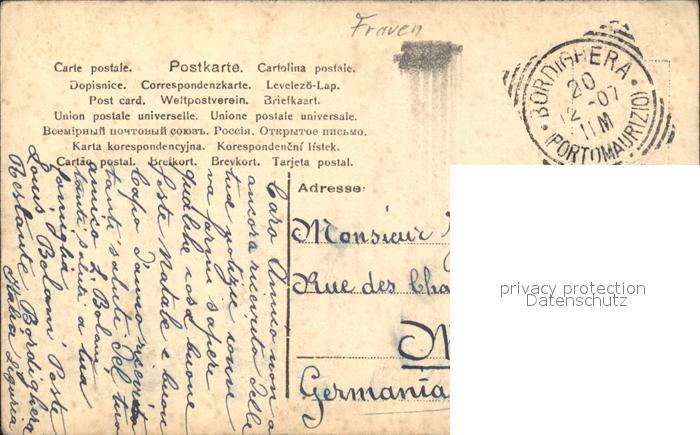 Fraven
Carte postale. Postkarte. Cartolina postale.
Dopisnice. Correspondenzkarte. Levelező-Lap.
Post card. Weltpostverein. Briefkaart.
Union postale universelle. Unione postale universale.
Всемірный почтовый союзъ. Россія. Открытое письмо.
Karta korespondencyjna. Korespondenční lístek.
Cartão postal. Brefkort. Brevkort. Tarjeta postal.
BORDIGHERA
20
12 - 07
11 M
(PORTOMAURIZIO)
Adresse:
Monsieur
Rue des
Germania
Caro Amico non o
ancora ricevuto delle
tue notizie
na farmi sapere
qualche cosa buone
feste Natale e buon
Capo d'anno ricevi
tanti saluti del tuo
amico L Bolani
tanti saluti a tua
famiglia
Louis Bolani Poste
Restante Bordighera
Italia Liguria
privacy protection
Datenschutz